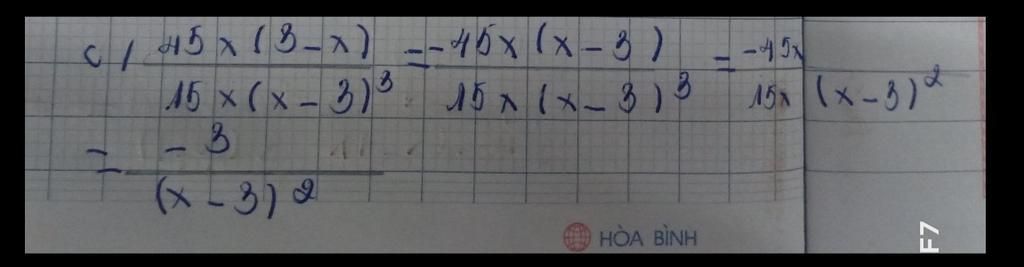 c / 45x(3-x) / 15x(x-3)³ = -45x(x-3) / 15x(x-3)³ = -45x / 15x(x-3)²
= -3 / (x-3)²
HÒA BÌNH
F7